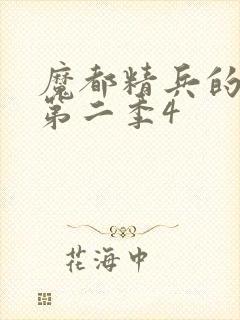 魔都精兵的
第二季4
花海中